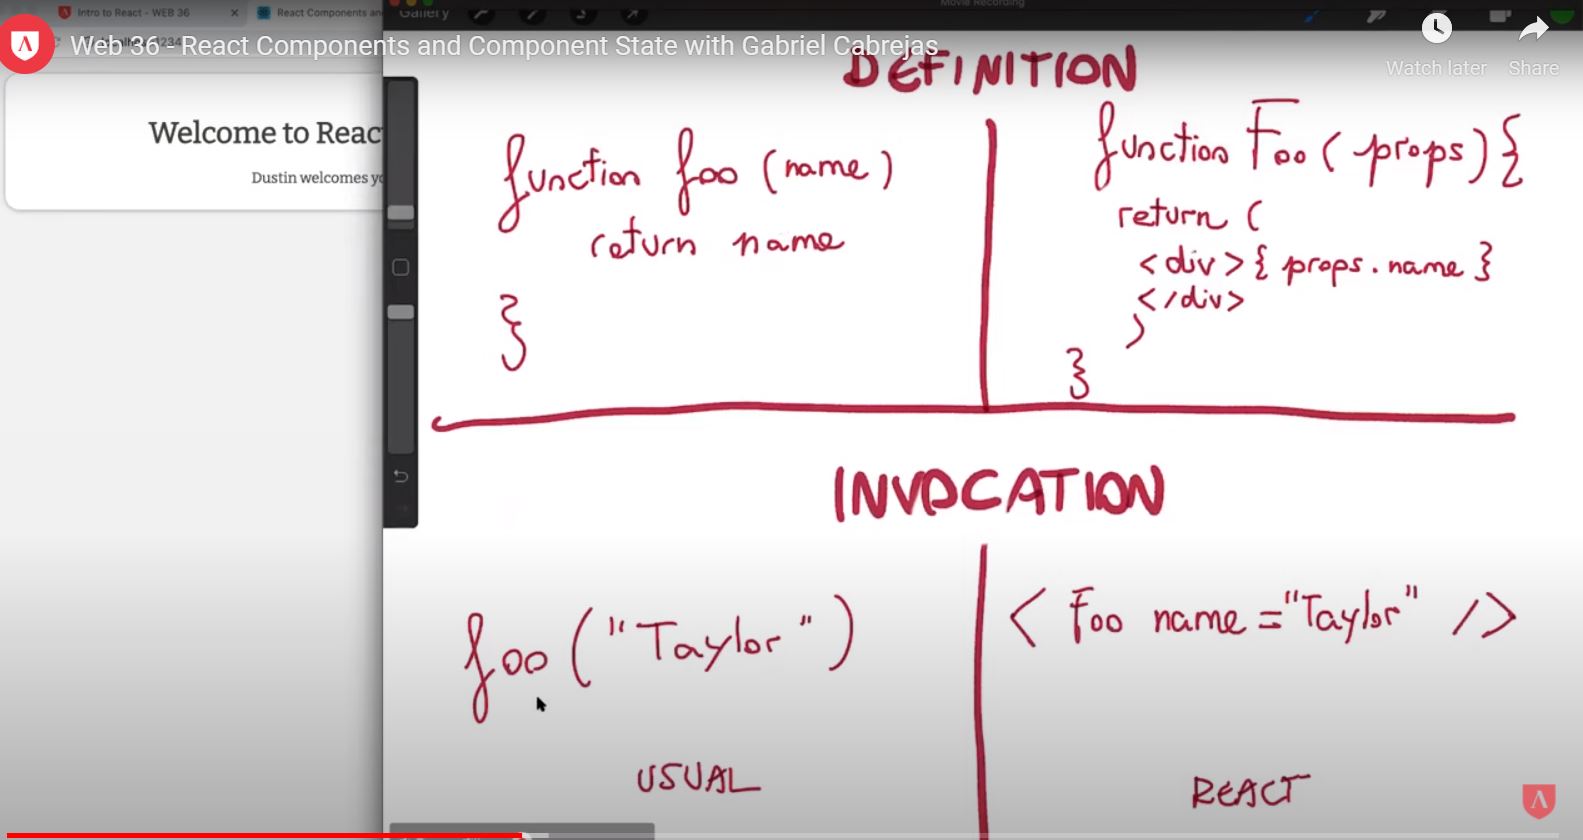 Intro to React - WEB 36
React Components an
Gallery
Movie Recording
Web 36 - React Components and Component State with Gabriel Cabrejas
Watch later
Share
Welcome to Reac
Dustin welcomes yo
DEFINITION
function foo (name)
return name
}
function Foo ( props) {
return (
<div> { props.name }
</div>
)
}
INVOCATION
foo ("Taylor")
< Foo name = "Taylor" />
USUAL
REACT